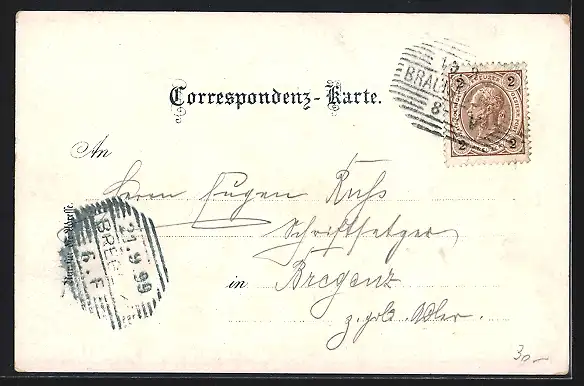 Correspondenz-Karte.
BRAU
8
2 2
2 2
An
Herrn Eugen Russ
Schriftsetzer
in Bregenz
z. gold. Adler.
Nur für die Adresse.
BREG
21.9.99
6.F
30-